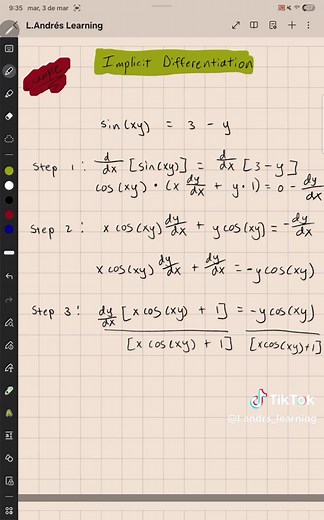 9:35 mar, 3 de mar
L.Andrés Learning
Implicit Differentiation
Example
sin(xy) = 3 - y
Step 1: d/dx [sin(xy)] = d/dx [3-y]
cos(xy) · (x dy/dx + y·1) = 0 - dy/dx
Step 2: x cos(xy) dy/dx + y cos(xy) = - dy/dx
x cos(xy) dy/dx + dy/dx = -y cos(xy)
Step 3: dy/dx [x cos(xy) + 1] = -y cos(xy)
[x cos(xy) + 1] [xcos(xy)+1]
TikTok
@l.andrs_learning